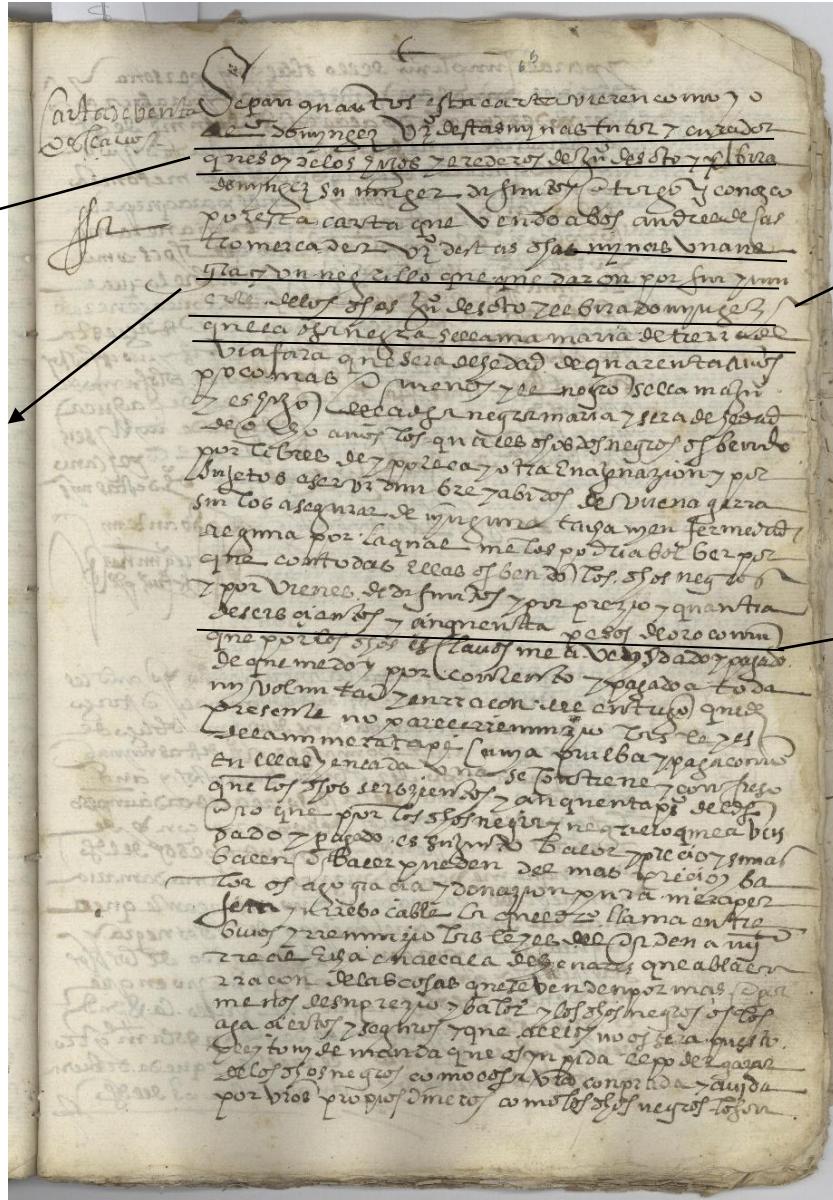 Carta de venta
esclavos
Sepan quantos esta carta vieren como yo
dominguez vzº destas minas tutor y curador
que soy de los hijos y erederos de juº de soto y elbira
dominguez su muger difuntos otorgo y conozco
por esta carta que vendo a bos andres de cas
tro mercader vzº destas dhas minas una ne
gra y un negrillo que quedaron por fin y mu
erte de los dhos juº de soto y elbira dominguez
que la dha negra se llama maria de tierra
viafara que sera de hedad de quarenta años
poco mas o menos y el negro se llama juº
y es hijo de la dha negra maria y sera de hedad
de ocho años los quales dhos dos negros os bendo
por libres de ypoteca y otra enajenazion y por
sujetos a servidumbre y abidos de buena gerra
sin los asegurar de ninguna tacha ni enfermedad
ninguna por la qual me los podria bolber por
que con todas ellas os bendo los dhos negros
y por vienes de difuntos y por prezio y quantia
de seiscientos y cinquenta pesos de oro comun
que por los dhos esclavos me aveys dado y pagado
de que me doy por contento y pagado a toda
mi voluntad y en rraçon del entrego que de
presente no pareze rrenunzio las leyes
de la ynnumerata pecunia prueba y paga como
en ellas y en cada una se contiene y confieso
que los dhos seiszientos y cinquenta pºs del dho
oro que por los dhos negra y negrillo me aveis
dado y pagado es su justo balor y precio y si mas
balen o baler pueden del mas precio y ba
lor os ago gracia y donazion pura mera per
feta y rrebocable la que el drº llama entre
bivos y rrenunzio las leyes del ordenamiº
rreal fha en alcala de henares que abla en
rraçon de las cosas que se venden por mas o por
menos de su prezio y balor y los dhos negros os los
ago ciertos y seguros y que a ellos no os sera puesto
pleyto ny demanda que os ynpida el poder gozar
de los dhos negros como cosa vrª conprada y avida
por vros propios dineros como los dhos negros lo son